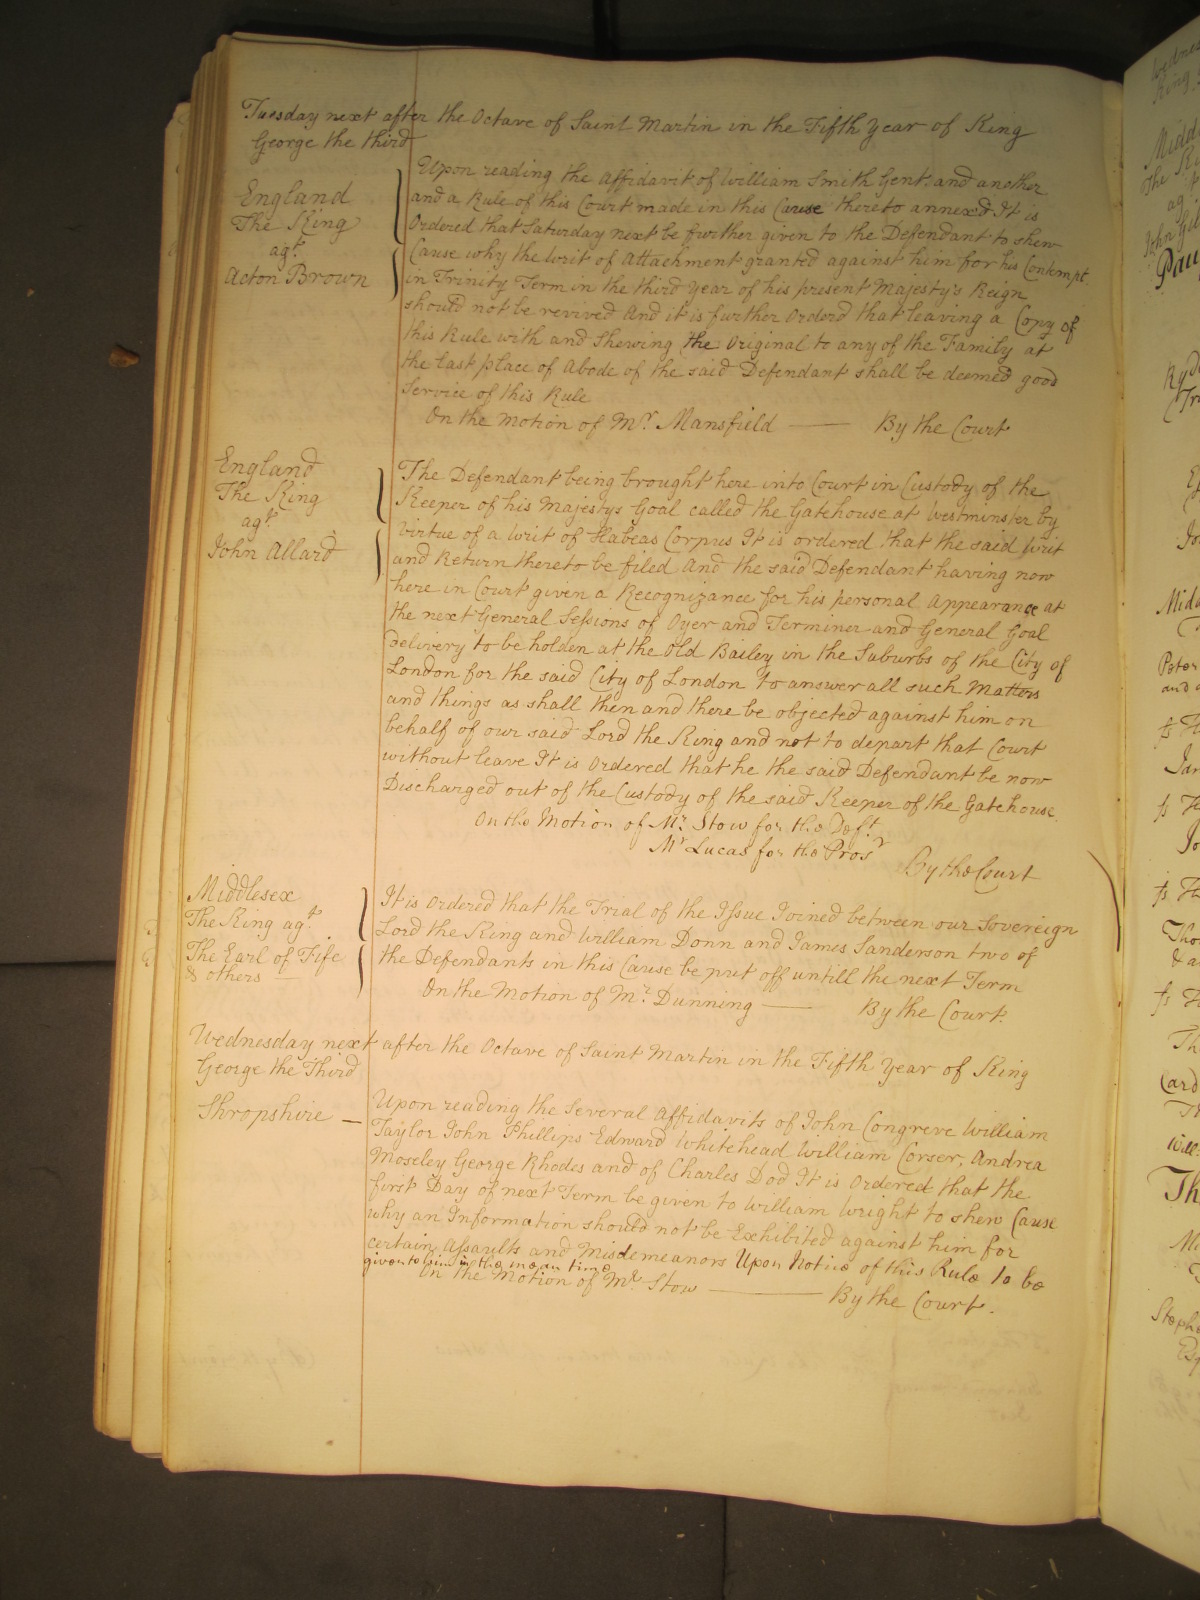 Tuesday next after the Octave of Saint Martin in the Fifth Year of King
George the third
England
The King
agt.
Acton Brown
Upon reading the Affidavit of William Smith Gent. and another
and a Rule of this Court made in this Cause thereto annexed It is
Ordered that Saturday next be further given to the Defendant to shew
Cause why the Writ of Attachment granted against him for his Contempt
in Trinity Term in the third Year of his present Majesty's Reign
should not be revived And it is further Ordered that leaving a Copy of
this Rule with and Shewing the Original to any of the Family at
the last place of Abode of the said Defendant shall be deemed good
Service of this Rule
On the Motion of Mr. Mansfield — By the Court
England
The King
agt.
John Allard
The Defendant being brought here into Court in Custody of the
Keeper of his Majestys Goal called the Gatehouse at Westminster by
Virtue of a Writ of Habeas Corpus It is ordered that the said Writ
and Return thereto be filed And the said Defendant having now
here in Court given a Recognizance for his personal Appearance at
the next General Sessions of Oyer and Terminer and General Goal
Delivery to be holden at the Old Bailey in the Suburbs of the City of
London for the said City of London to answer all such Matters
and things as shall then and there be objected against him on
behalf of our said Lord the King and not to depart that Court
without leave It is Ordered that he the said Defendant be now
Discharged out of the Custody of the said Keeper of the Gatehouse.
On the Motion of Mr. Stow for the Deft.
Mr Lucas for the Prosr
By the Court
Middlesex
The King agt.
The Earl of Fife
& others
It is Ordered that the Trial of the Issue Joined between our Sovereign
Lord the King and William Donn and James Sanderson two of
the Defendants in this Cause be put off untill the next Term
On the Motion of Mr. Dunning — By the Court.
Wednesday next after the Octave of Saint Martin in the Fifth Year of King
George the Third
Shropshire —
Upon reading the Several Affidavits of John Congreve William
Taylor John Phillips Edward Whitehead William Corser, Andrea
Moseley George Rhodes and of Charles Dod It is Ordered that the
first Day of next Term be given to William Wright to shew Cause
why an Information should not be Exhibited against him for
certain Assaults and Misdemeanors Upon Notice of this Rule to be
given to him in the mean time
On the Motion of Mr. Stow — By the Court.